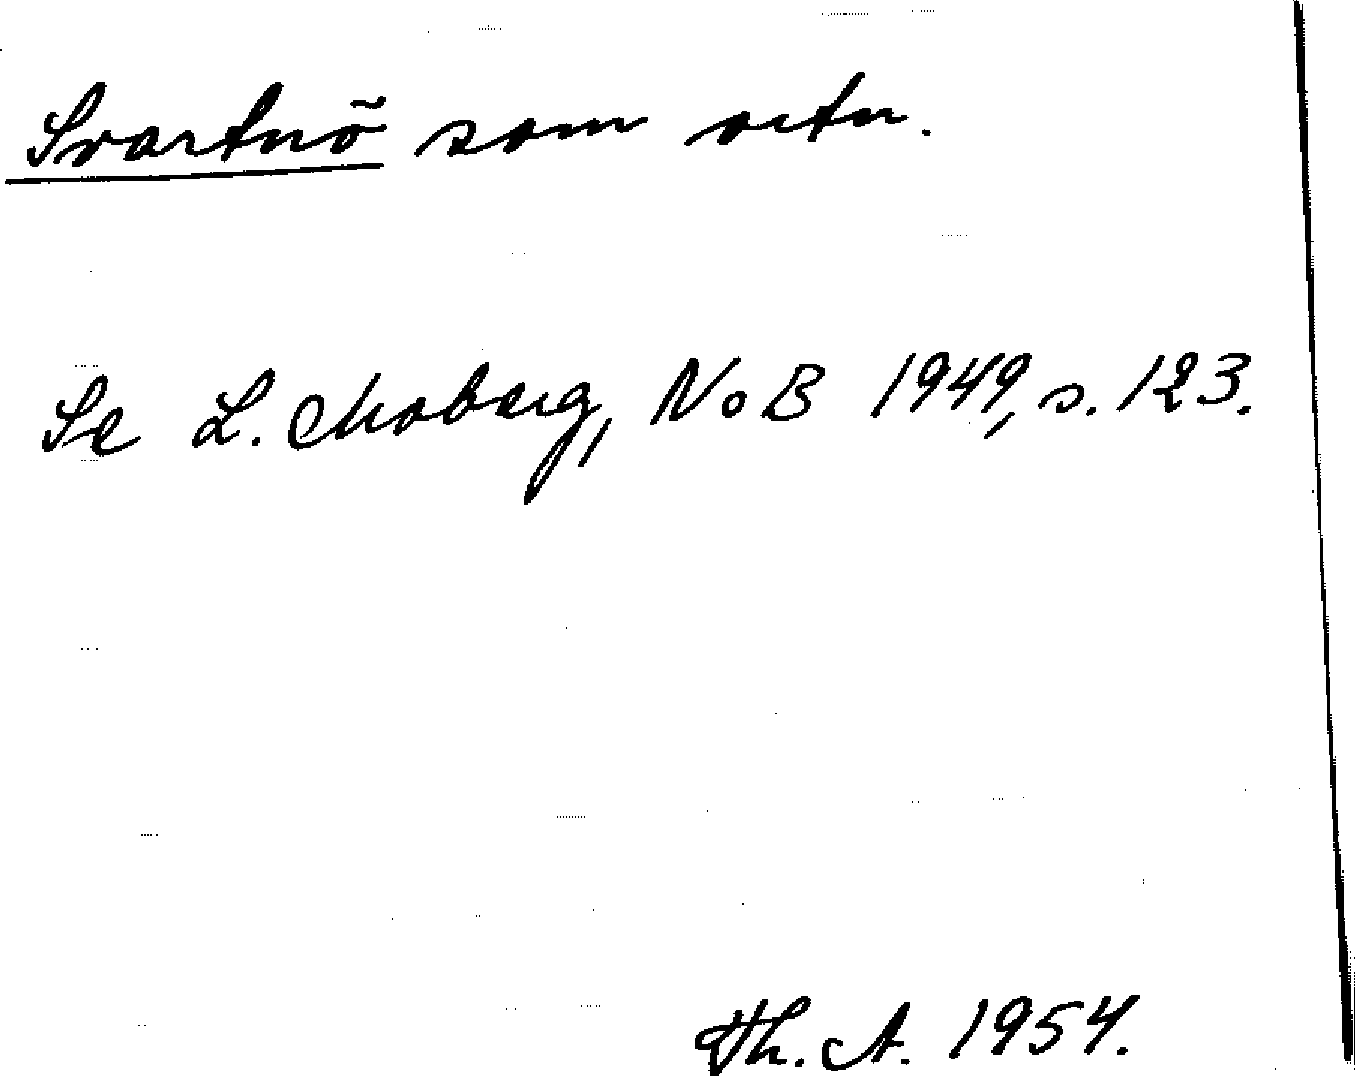 Svartnö som ortn.
Se L. Moberg, NoB 1949, s. 123.
Th. A. 1954.